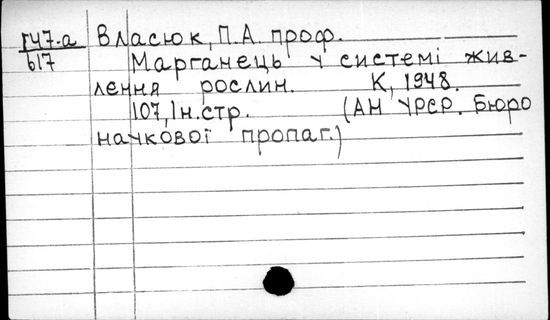 Г47-а Власюк, П.А. проф.
617 Марганець у системі жив-
лення рослин. К, 1948.
107, 1н.стр. (АН УРСР. Бюро
наукової пропаг.)